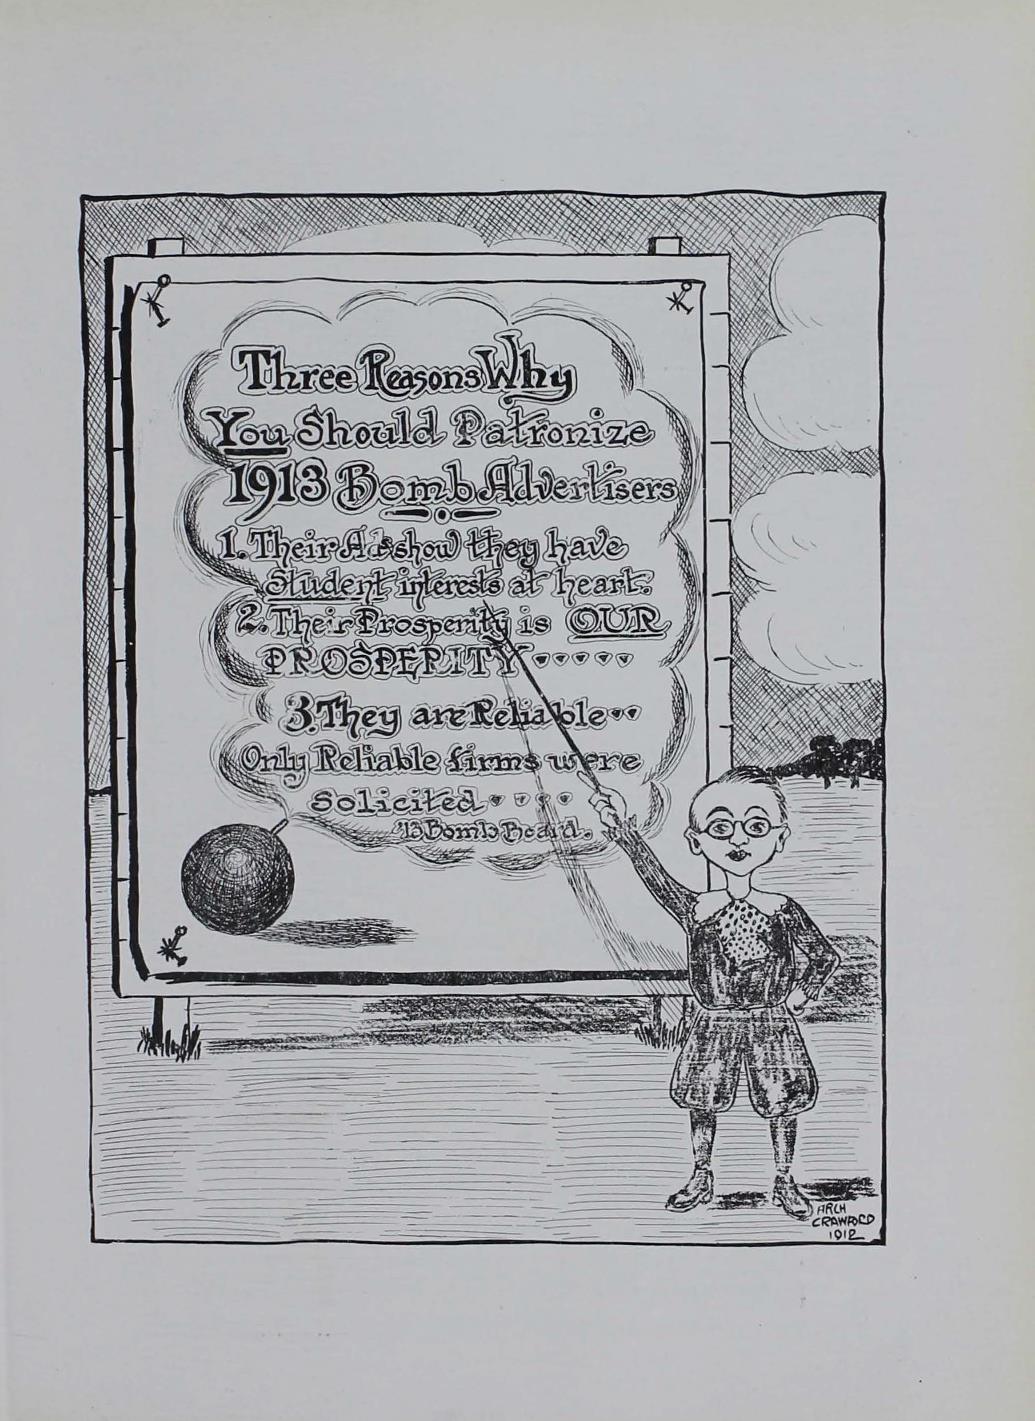 Three Reasons Why
You Should Patronize
1913 Bomb Advertisers
1. Their Ad's show they have
Student interests at heart.
2. Their Prosperity is OUR
PROSPERITY
3. They are Reliable
Only Reliable firms were
solicited
'13 Bomb Board.
ARCH
CRAWFORD
1912